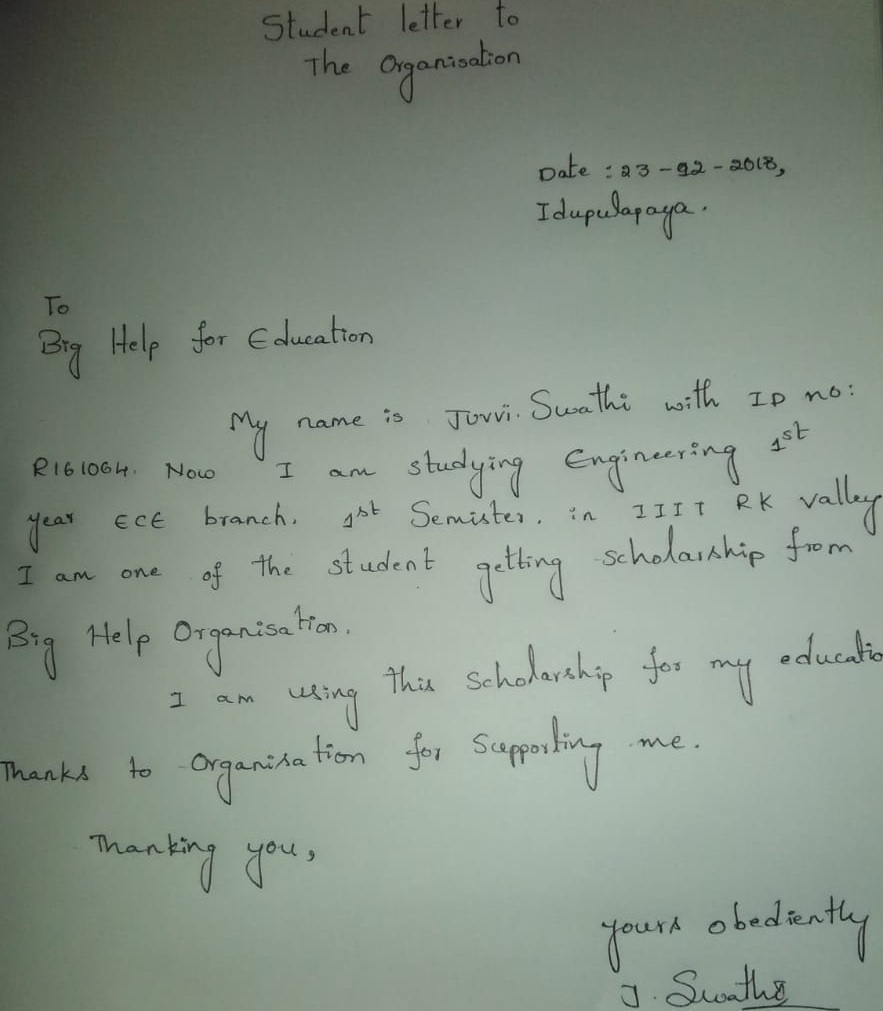 Student letter to
The Organisation
Date : 23 - 92 - 2018,
Idupulapaya.
To
Big Help for Education
My name is Juvvi. Swathi with ID no:
R161064. Now I am studying Engineering 1st
year ECE branch. 1st Semister. in IIIT RK valley
I am one of the student getting scholarship from
Big Help Organisation.
I am using this scholarship for my educatio
Thanks to Organisation for Supporting me.
Thanking you,
yours obediently
J. Swathi